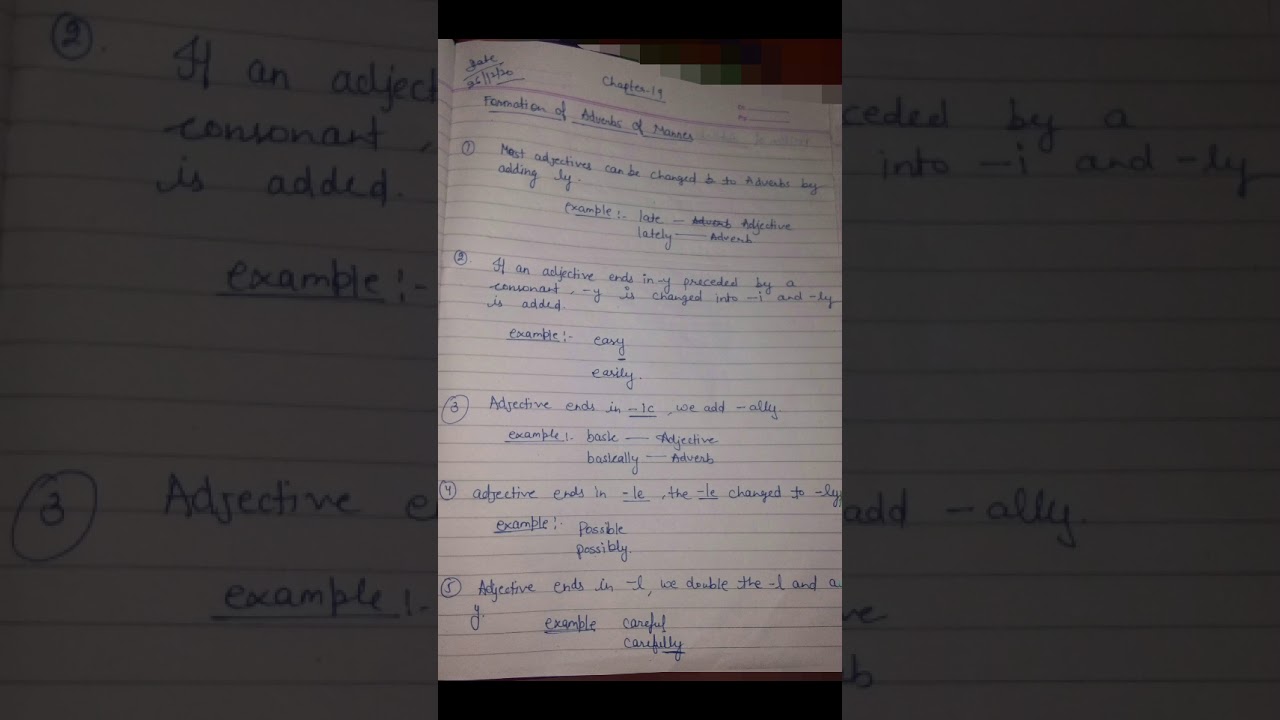 Date
26/12/20
Chapter-19
Formation of Adverbs of Manner
① Most adjectives can be changed to Adverbs by
adding ly.
example:- late — Adverb Adjective
lately — Adverb
② If an adjective ends in -y preceded by a
consonant, -y is changed into -i and -ly
is added.
example:- easy
easily.
③ Adjective ends in -ic, we add -ally.
example:- basic — Adjective
basically — Adverb
④ adjective ends in -le, the -le changed to -ly
example:- Possible
possibly.
⑤ Adjective ends in -l, we double the -l and
y.
example careful
carefully